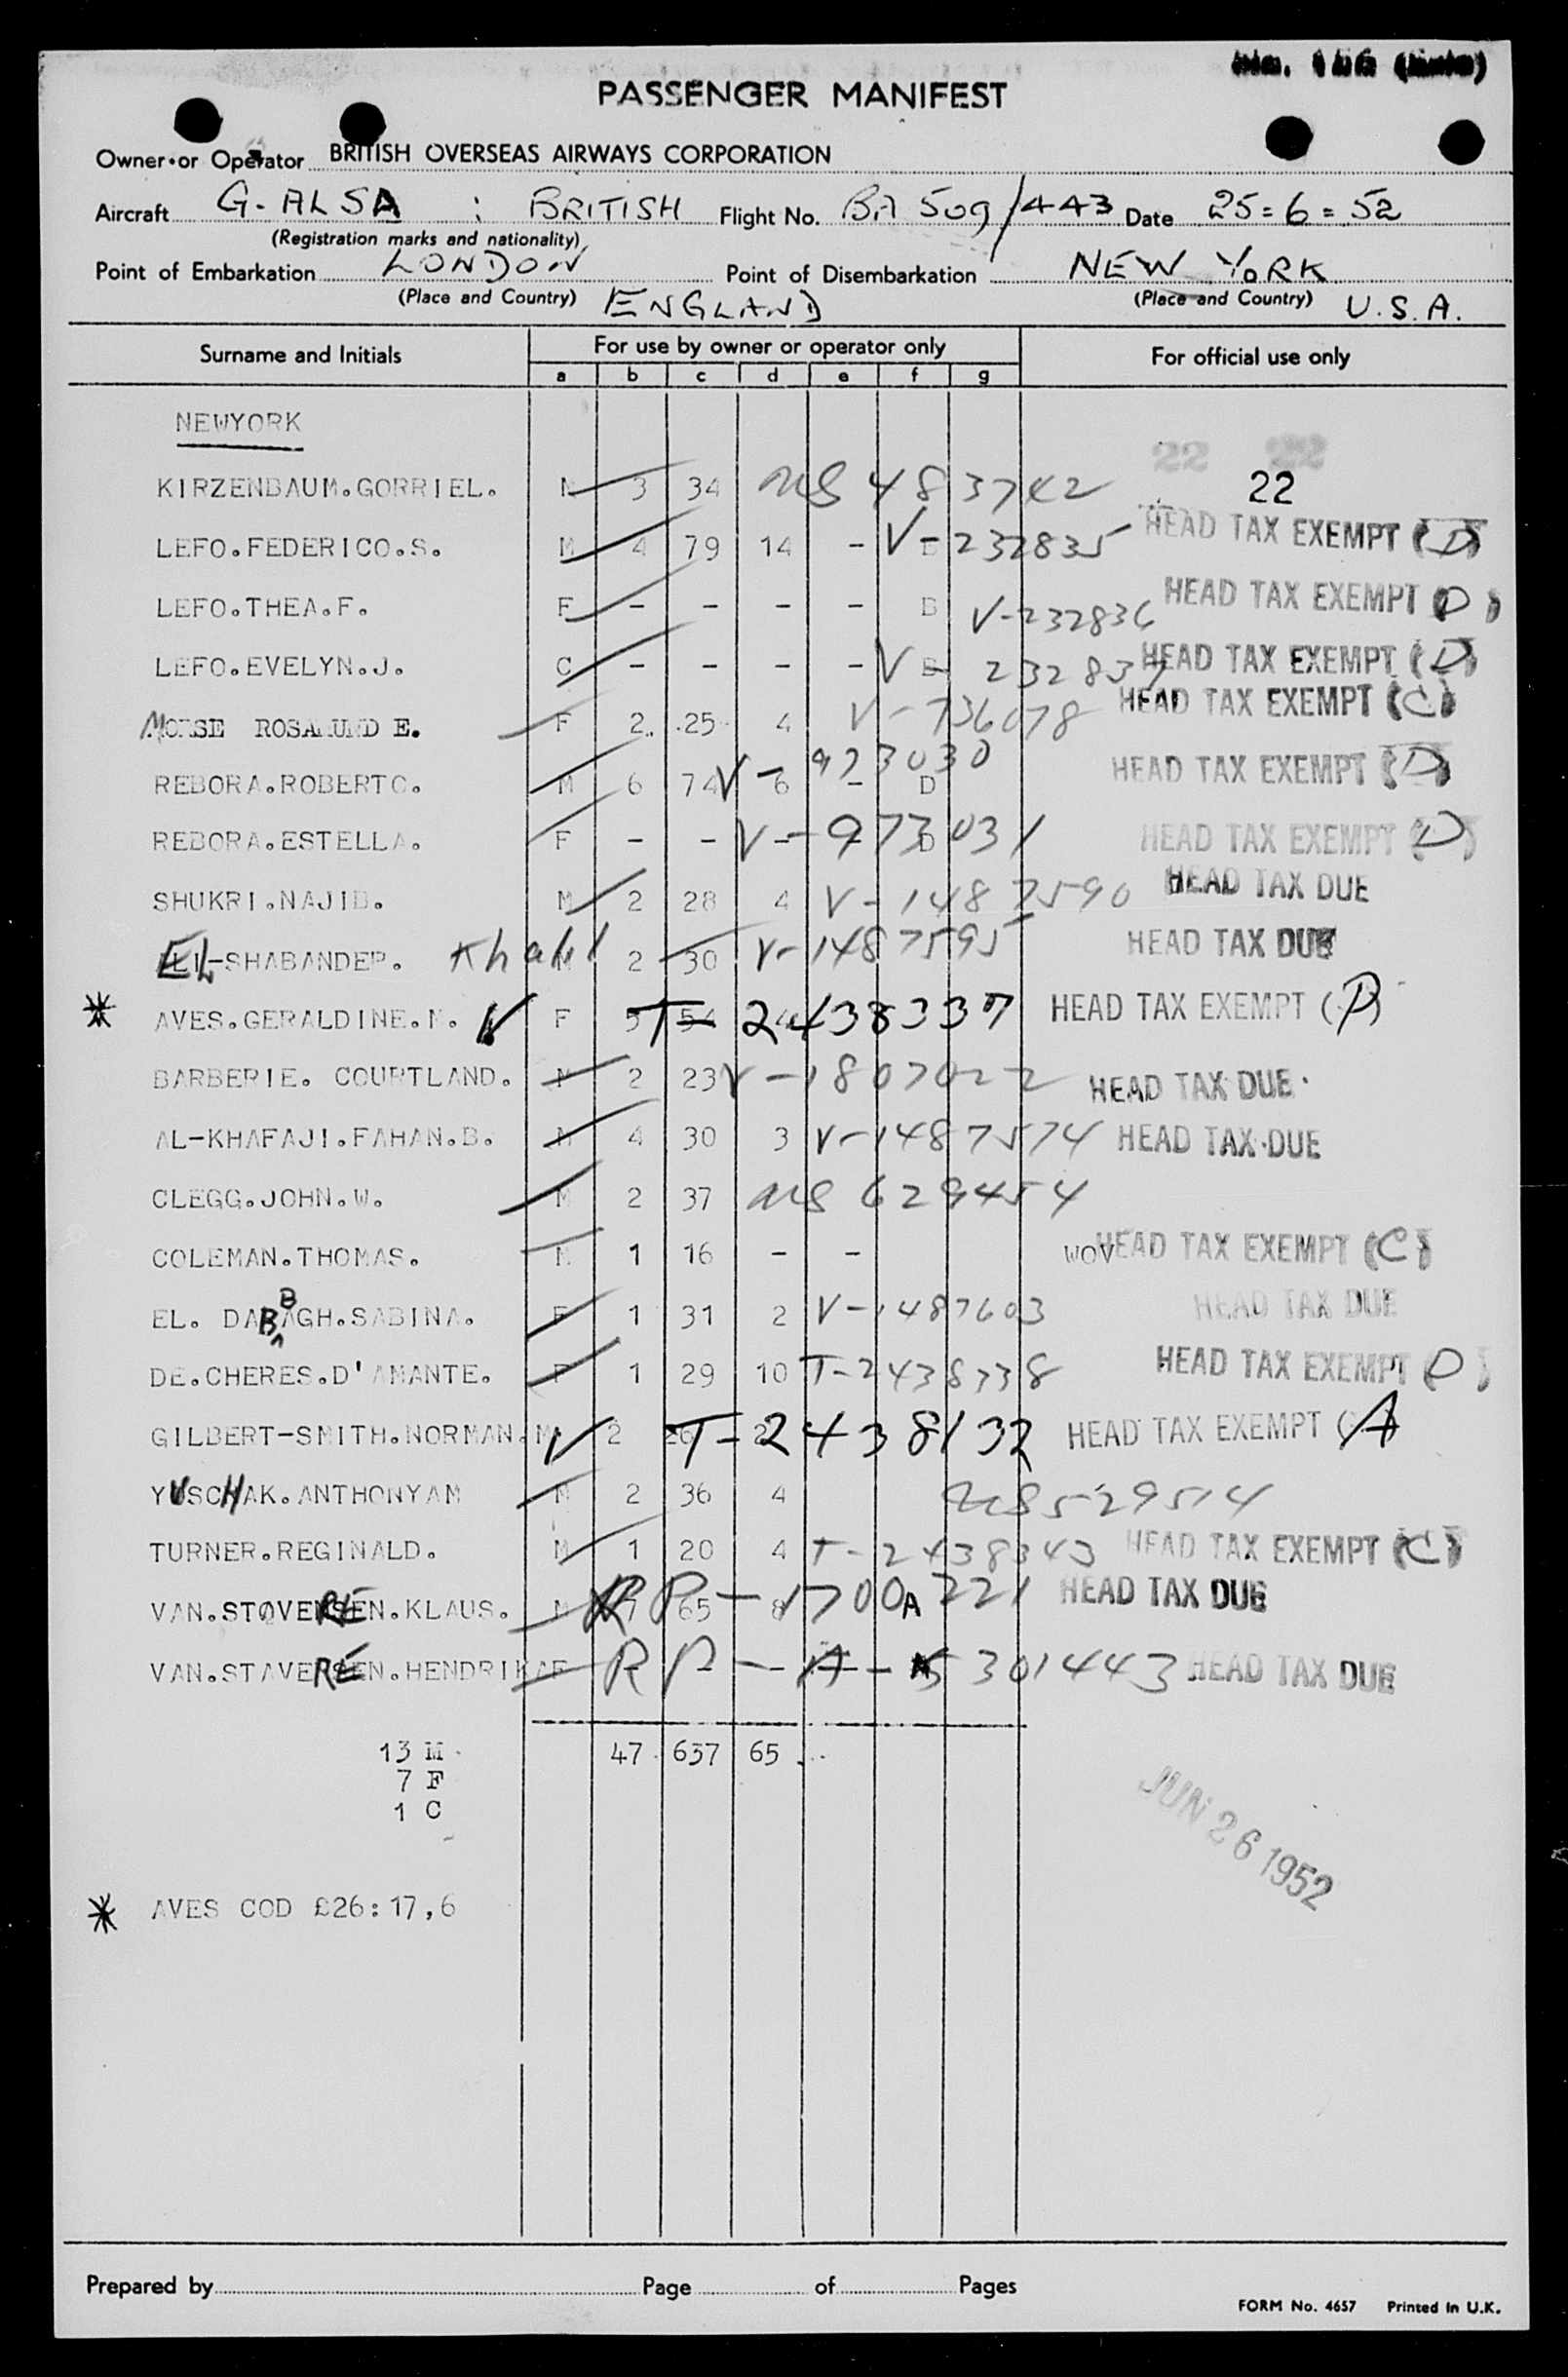 PASSENGER MANIFEST
Owner or Operator BRITISH OVERSEAS AIRWAYS CORPORATION
Aircraft G-ALSA : BRITISH Flight No. BA 509/443 Date 25=6=52
(Registration marks and nationality)
Point of Embarkation LONDON Point of Disembarkation NEW YORK
(Place and Country) ENGLAND (Place and Country) U.S.A.
Surname and Initials For use by owner or operator only For official use only
a b c d e f g
NEWYORK
22 22
KIRZENBAUM.GORRIEL. M 3 34 483742 22
LEFO.FEDERICO.S. M 4 79 14 - V-232835 HEAD TAX EXEMPT (D)
LEFO.THEA.F. F - - - - B V-232836 HEAD TAX EXEMPT (D)
LEFO.EVELYN.J. C - - - - V-232837 HEAD TAX EXEMPT (D)
MORSE ROSAMUND E. F 2 25 4 V-736078 HEAD TAX EXEMPT (C)
REBORA.ROBERTO. M 6 74 6 - D V-973030 HEAD TAX EXEMPT (D)
REBORA.ESTELLA. F - - - V-973031 HEAD TAX EXEMPT (D)
SHUKRI.NAJIB. M 2 28 4 V-1487590 HEAD TAX DUE
EL-SHABANDER. Khalil 2 30 V-1487595 HEAD TAX DUE
* AVES.GERALDINE.M. F 5 54 T-2438337 HEAD TAX EXEMPT (D)
BARBERIE. COURTLAND. M 2 23 V-1807022 HEAD TAX DUE.
AL-KHAFAJI.FAHAN.B. M 4 30 3 V-1487574 HEAD TAX DUE
CLEGG.JOHN.W. M 2 37 629454
COLEMAN.THOMAS. M 1 16 - - WOV HEAD TAX EXEMPT (C)
EL. DABBAGH.SABINA. F 1 31 2 V-1487603 HEAD TAX DUE
DE.CHERES.D'AMANTE. F 1 29 10 T-2438338 HEAD TAX EXEMPT (D)
GILBERT-SMITH.NORMAN. M 2 26 2 T-2438132 HEAD TAX EXEMPT (A)
YUSCHAK.ANTHONYAM M 2 36 4 529514
TURNER.REGINALD. M 1 20 4 T-2438343 HEAD TAX EXEMPT (C)
VAN.STØVEREN.KLAUS. M 7 65 8 RP-1700A221 HEAD TAX DUE
VAN.STAVEREN.HENDRIKA F RP-A-5301443 HEAD TAX DUE
13 M 47 637 65
7 F
1 C
JUN 26 1952
* AVES COD £26:17,6
Prepared by Page of Pages
FORM No. 4657 Printed in U.K.